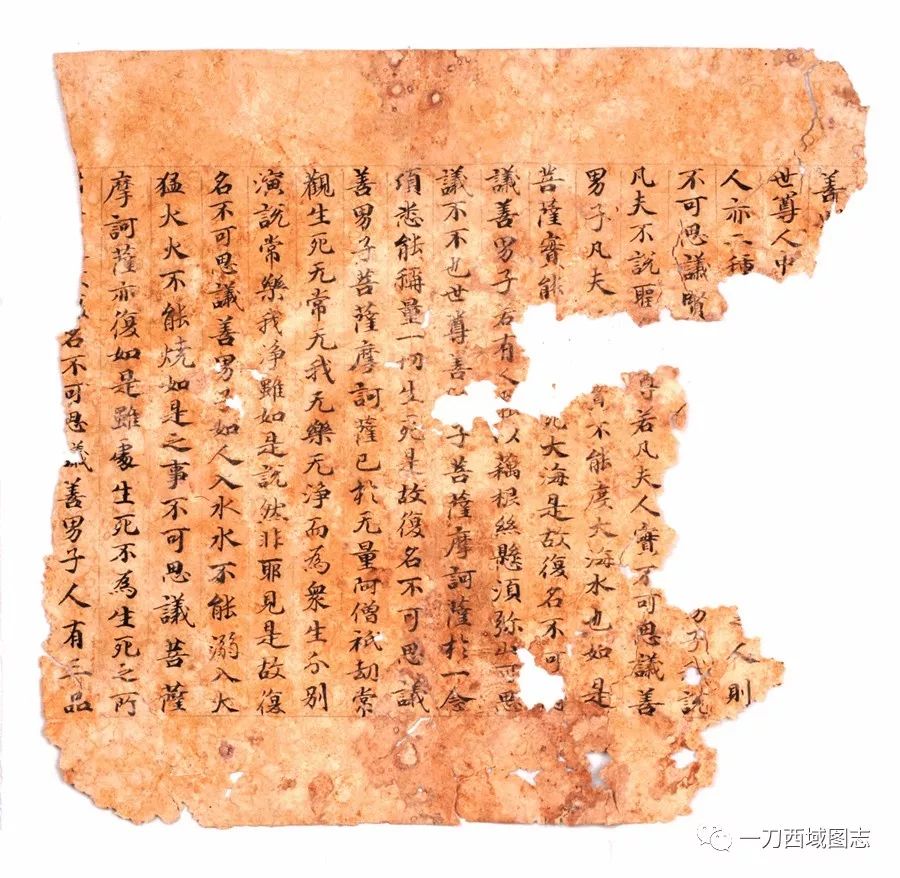 善
世尊人中
人亦二種 人則
不可思議賢 說
凡夫不說聖 尊若凡夫人實不可思議善
男子凡夫 不能度大海水也如是
菩薩實能 死大海是故復名不可
議善男子若有人 以藕根絲懸須弥山可思
議不不也世尊善 子菩薩摩訶薩於一念
須悉能稱量一切生死是故復名不可思議
善男子菩薩摩訶薩已於无量阿僧祇劫常
觀生死无常无我无樂无淨而為衆生分別
演說常樂我淨雖如是說然非耶見是故復
名不可思議善男子如人入水水不能溺入大
猛火火不能燒如是之事不可思議菩薩
摩訶薩亦復如是雖處生死不為生死之所
名不可思議善男子人有三品
一刀西域图志